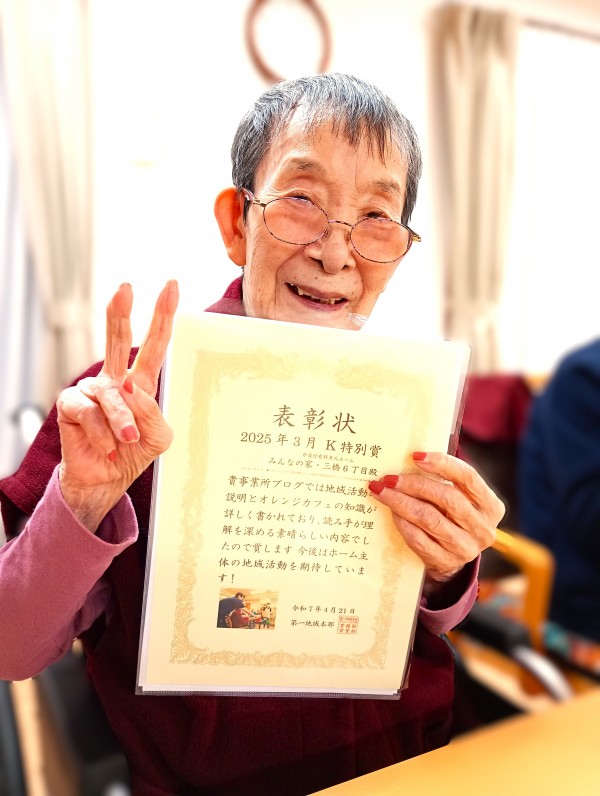 表彰状
2025年3月 K特別賞
介護付有料老人ホーム
みんなの家・三橋6丁目殿
貴事業所ブログでは地域活動の
説明とオレンジカフェの知識が
詳しく書かれており、読み手が理
解を深める素晴らしい内容でし
たので賞します 今後はホーム主
体の地域活動を期待していま
す!
令和7年4月21日
第一地域本部